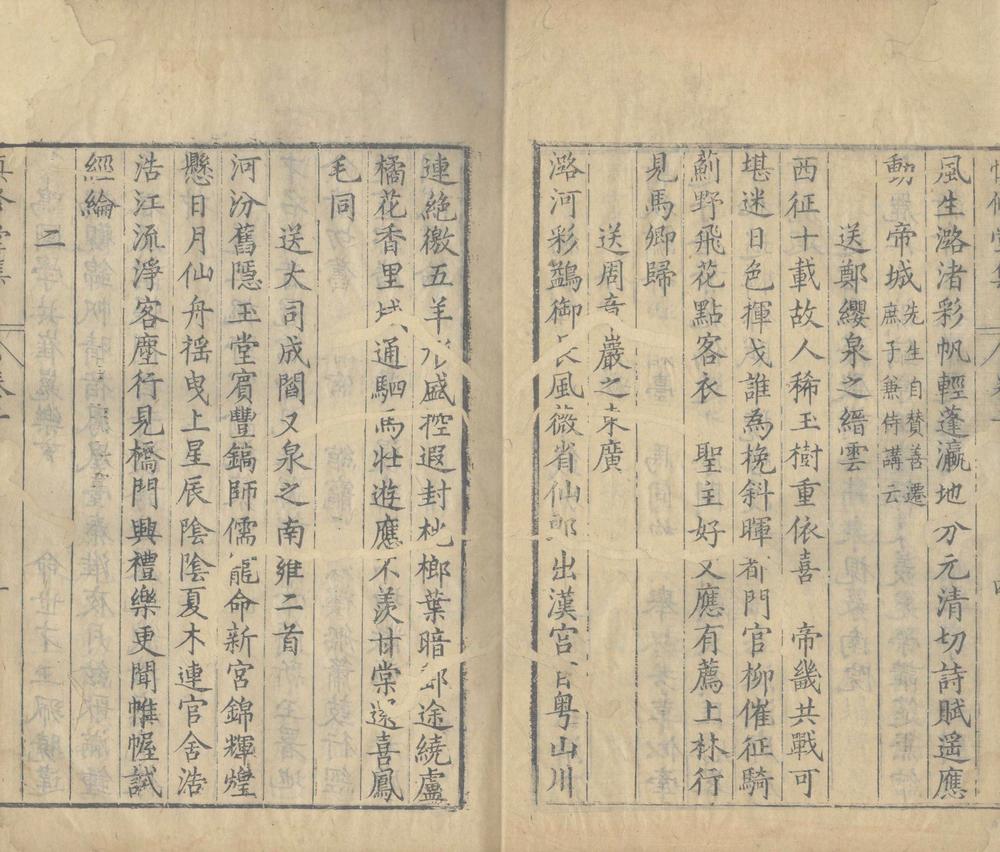 風生潞渚彩帆輕蓬瀛地分元清切詩賦遥應
動 帝城先生自贊善遷庶子兼侍講云
送鄭纓泉之縉雲
西征十載故人稀玉樹重依喜 帝畿共戰可
堪迷日色揮戈誰為挽斜暉都門官柳催征騎
薊野飛花點客衣 聖主好文應有薦上林行
見馬卿歸
送周 巖之東廣
潞河彩鷁御長風薇省仙郎出漢宫 粤山川
連絶徼五羊 盛控遐封桄榔葉暗郵途繞盧
橘花香里 通駟馬壯遊應不羨甘棠 喜鳳
毛同
送大司成閻文泉之南雍二首
河汾舊隱玉堂賓豐鎬師儒寵命新宮錦輝煌
懸日月仙舟摇曳上星辰陰陰夏木連官舍浩
浩江流淨客塵行見橋門興禮樂更聞帷幄試
經綸
二